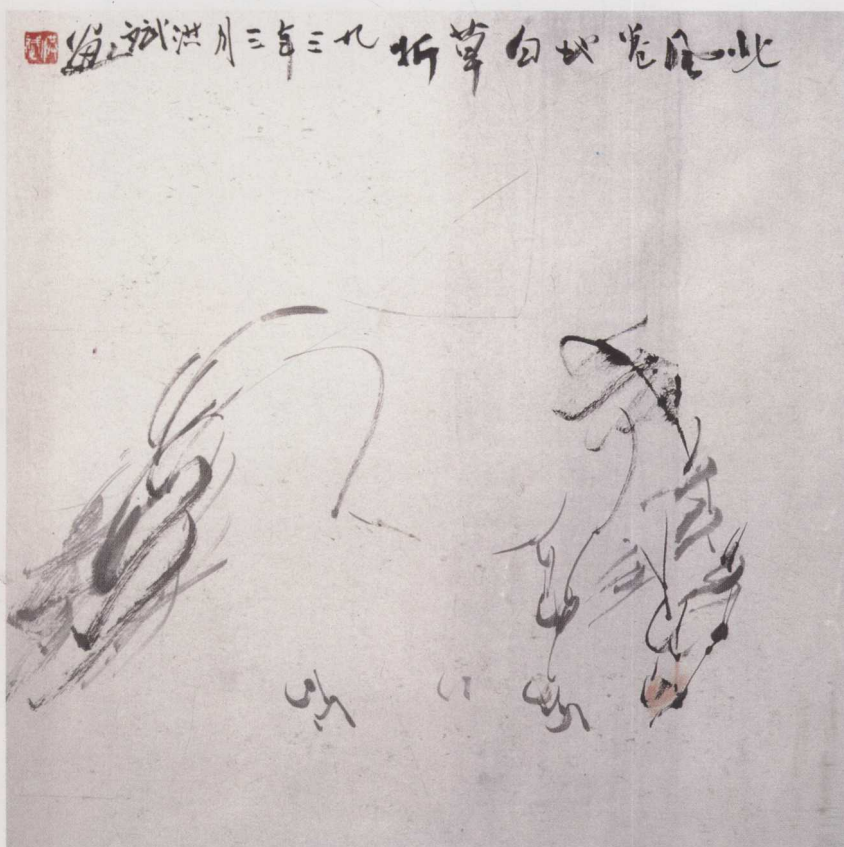 北风卷地白草折 九三年三月洪斌画